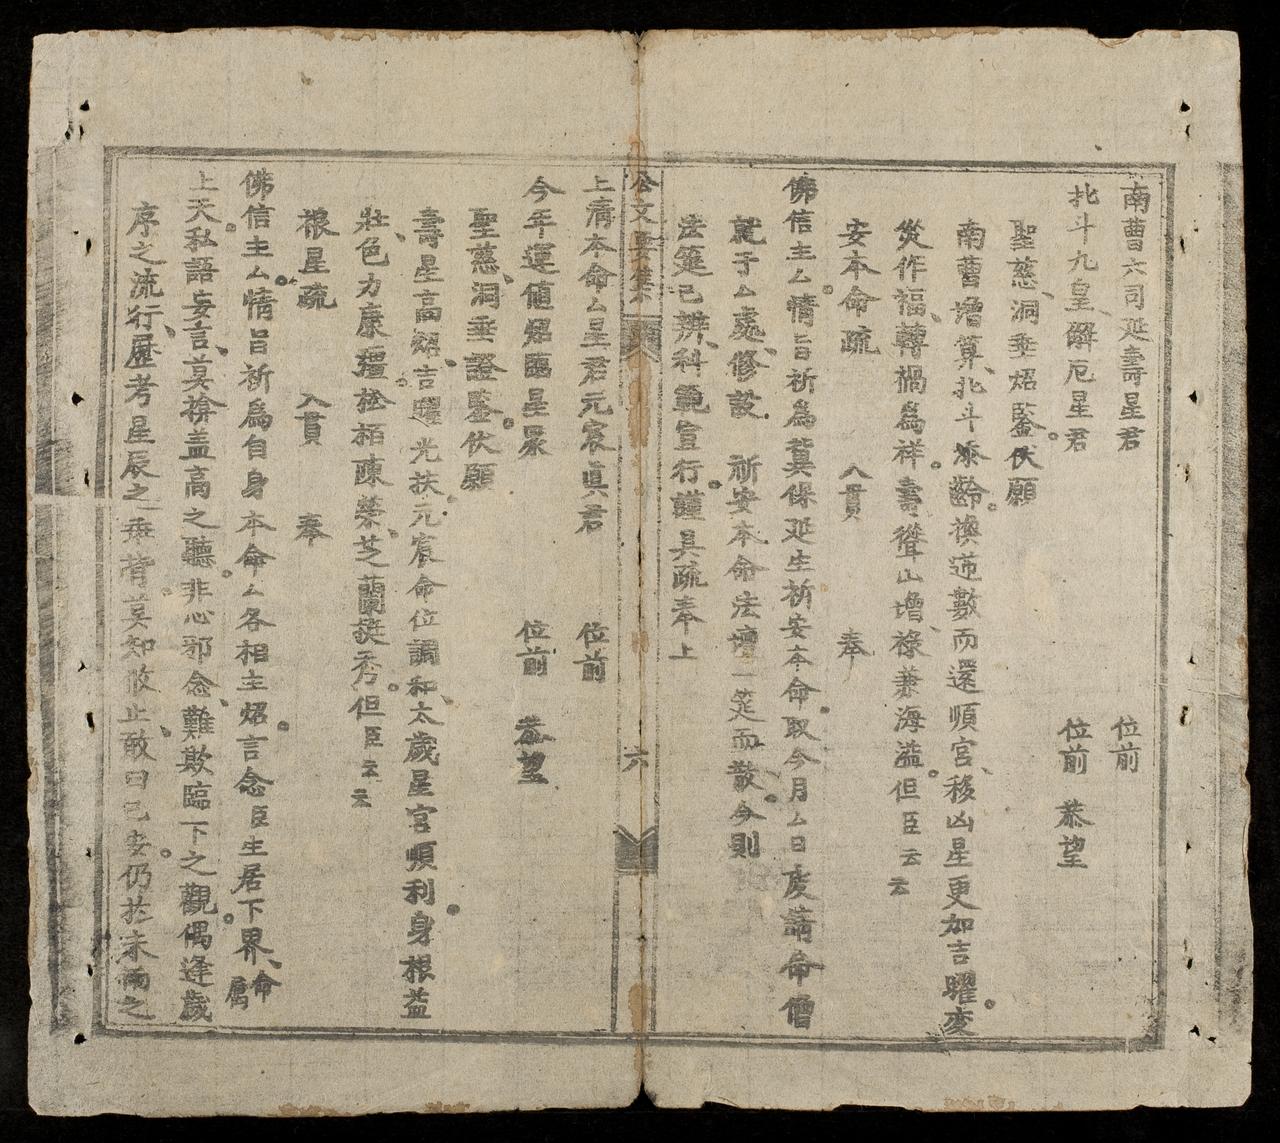 南曹六司延壽星君 位前
北斗九皇解厄星君 位前 恭望
聖慈、洞垂炤鑒。伏願
南曹增算、北斗添齡。換逆數而還順宮、移凶星更加吉曜。変
災作福、轉禍爲祥。壽聳山增、祿兼海溢。但臣云云
安本命疏 入貫 奉
佛信主厶。情旨祈爲冀保延生祈安本命。取今月厶日虔請命僧
就于厶處、修設 祈安本命法壇一筵而散。今則
法筵已辨、科範宣行。謹具疏奉上
公文要集 六
上清本命厶星君元宸真君 位前
今年運值炤臨星眾 位前 恭望
聖慈、洞垂證鑒。伏願
壽星高炤、吉曜光扶。元宸命位調和、太歲星宮順利。身根益
壯、色力康彊。松栢陳榮、芝蘭挺秀。但臣云云
根星疏 入貫 奉
佛信主厶。情旨祈爲自身本命厶各相主炤。言念臣生居下界、命屬
上天。私語妄言、莫揜盖高之聽。非心邪念、難欺臨下之觀。偶逢歲
序之流行、歷考星辰之乖背。莫知攸止、敢曰已安。仍於未雨之